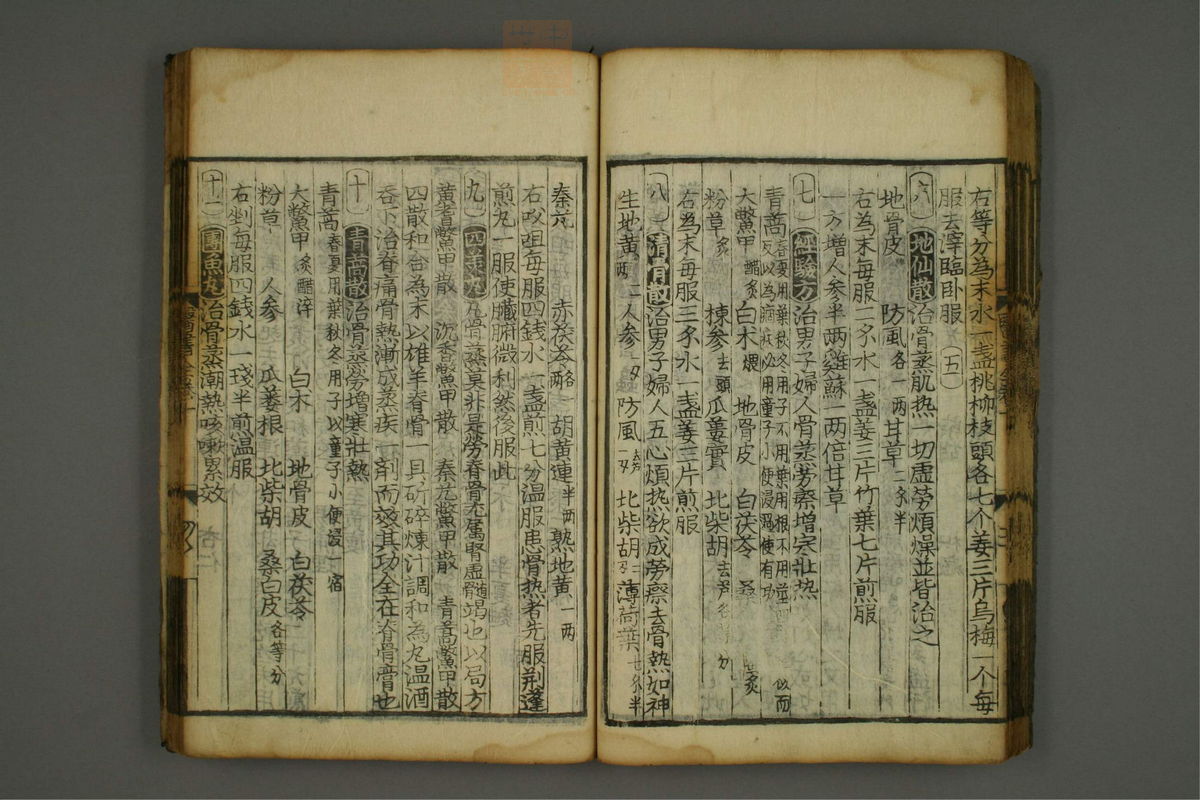 右等分為末水一盞桃柳枝頭各七个姜三片烏梅一个每
服去滓臨卧服 五
六 地仙散治骨蒸肌热一切虚勞煩燥並皆治之
地骨皮 防風各一两甘草二分半
右為末每服二分水一盞姜三片竹葉七片煎服
一方增人参半两雞蘇一两倍甘草
七 經驗方治男子婦人骨蒸劳瘵增寒壮热
青蒿春夏用葉秋冬用子不用葉用根不用
反以為痼疾必用童子小便浸過使有功
大鱉甲醋炙 白术煨 地骨皮 白茯苓 桑
粉草炙 楝参去頭瓜蔞實 北柴胡去芦
右為末每服三分水一盞姜三片煎服
八 清骨散治男子婦人五心煩热欲成劳瘵去骨熱如神
生地黄两二人参一分防風去芦一分北柴胡薄荷葉七分半
秦艽 赤茯苓各一两 胡黄連半两熟地黄一两
右㕮咀每服四銭水一盞煎七分温服患骨热者先服荆蓬
煎丸一服使臟腑微利然後服此
九 四美丸凡骨蒸莫非是勞脊骨尤属腎虚髓竭也以局方
黄耆鱉甲散 沉香鱉甲散 秦艽鱉甲散 青蒿鱉甲散
四散和合為末以雄羊脊骨一具斫碎煉汁調和為丸温酒
吞下治脊痛骨熱漸成蒸疾一剤而效其功全在脊骨膏也
十 青蒿散治骨蒸勞增寒壮熱
青蒿春夏用葉秋冬用子以童子小便浸一宿
大鱉甲炙醋淬 白术 地骨皮 白茯苓
粉草 人参 瓜蔞根 北柴胡 桑白皮各等分
右剉每服四錢水一琖半煎温服
十一 團魚丸治骨蒸潮熱咳嗽累效